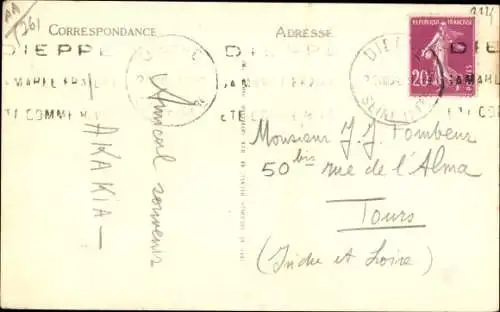 AA
261
CORRESPONDANCE
ADRESSE
DIEPPE
DIEPPE
REPUBLIQUE FRANÇAISE
20c
POSTES
Amical souvenir
AKAKIA —
Monsieur J. J. Tombeur
50 bis rue de l'Alma
Tours
(Indre et Loire)